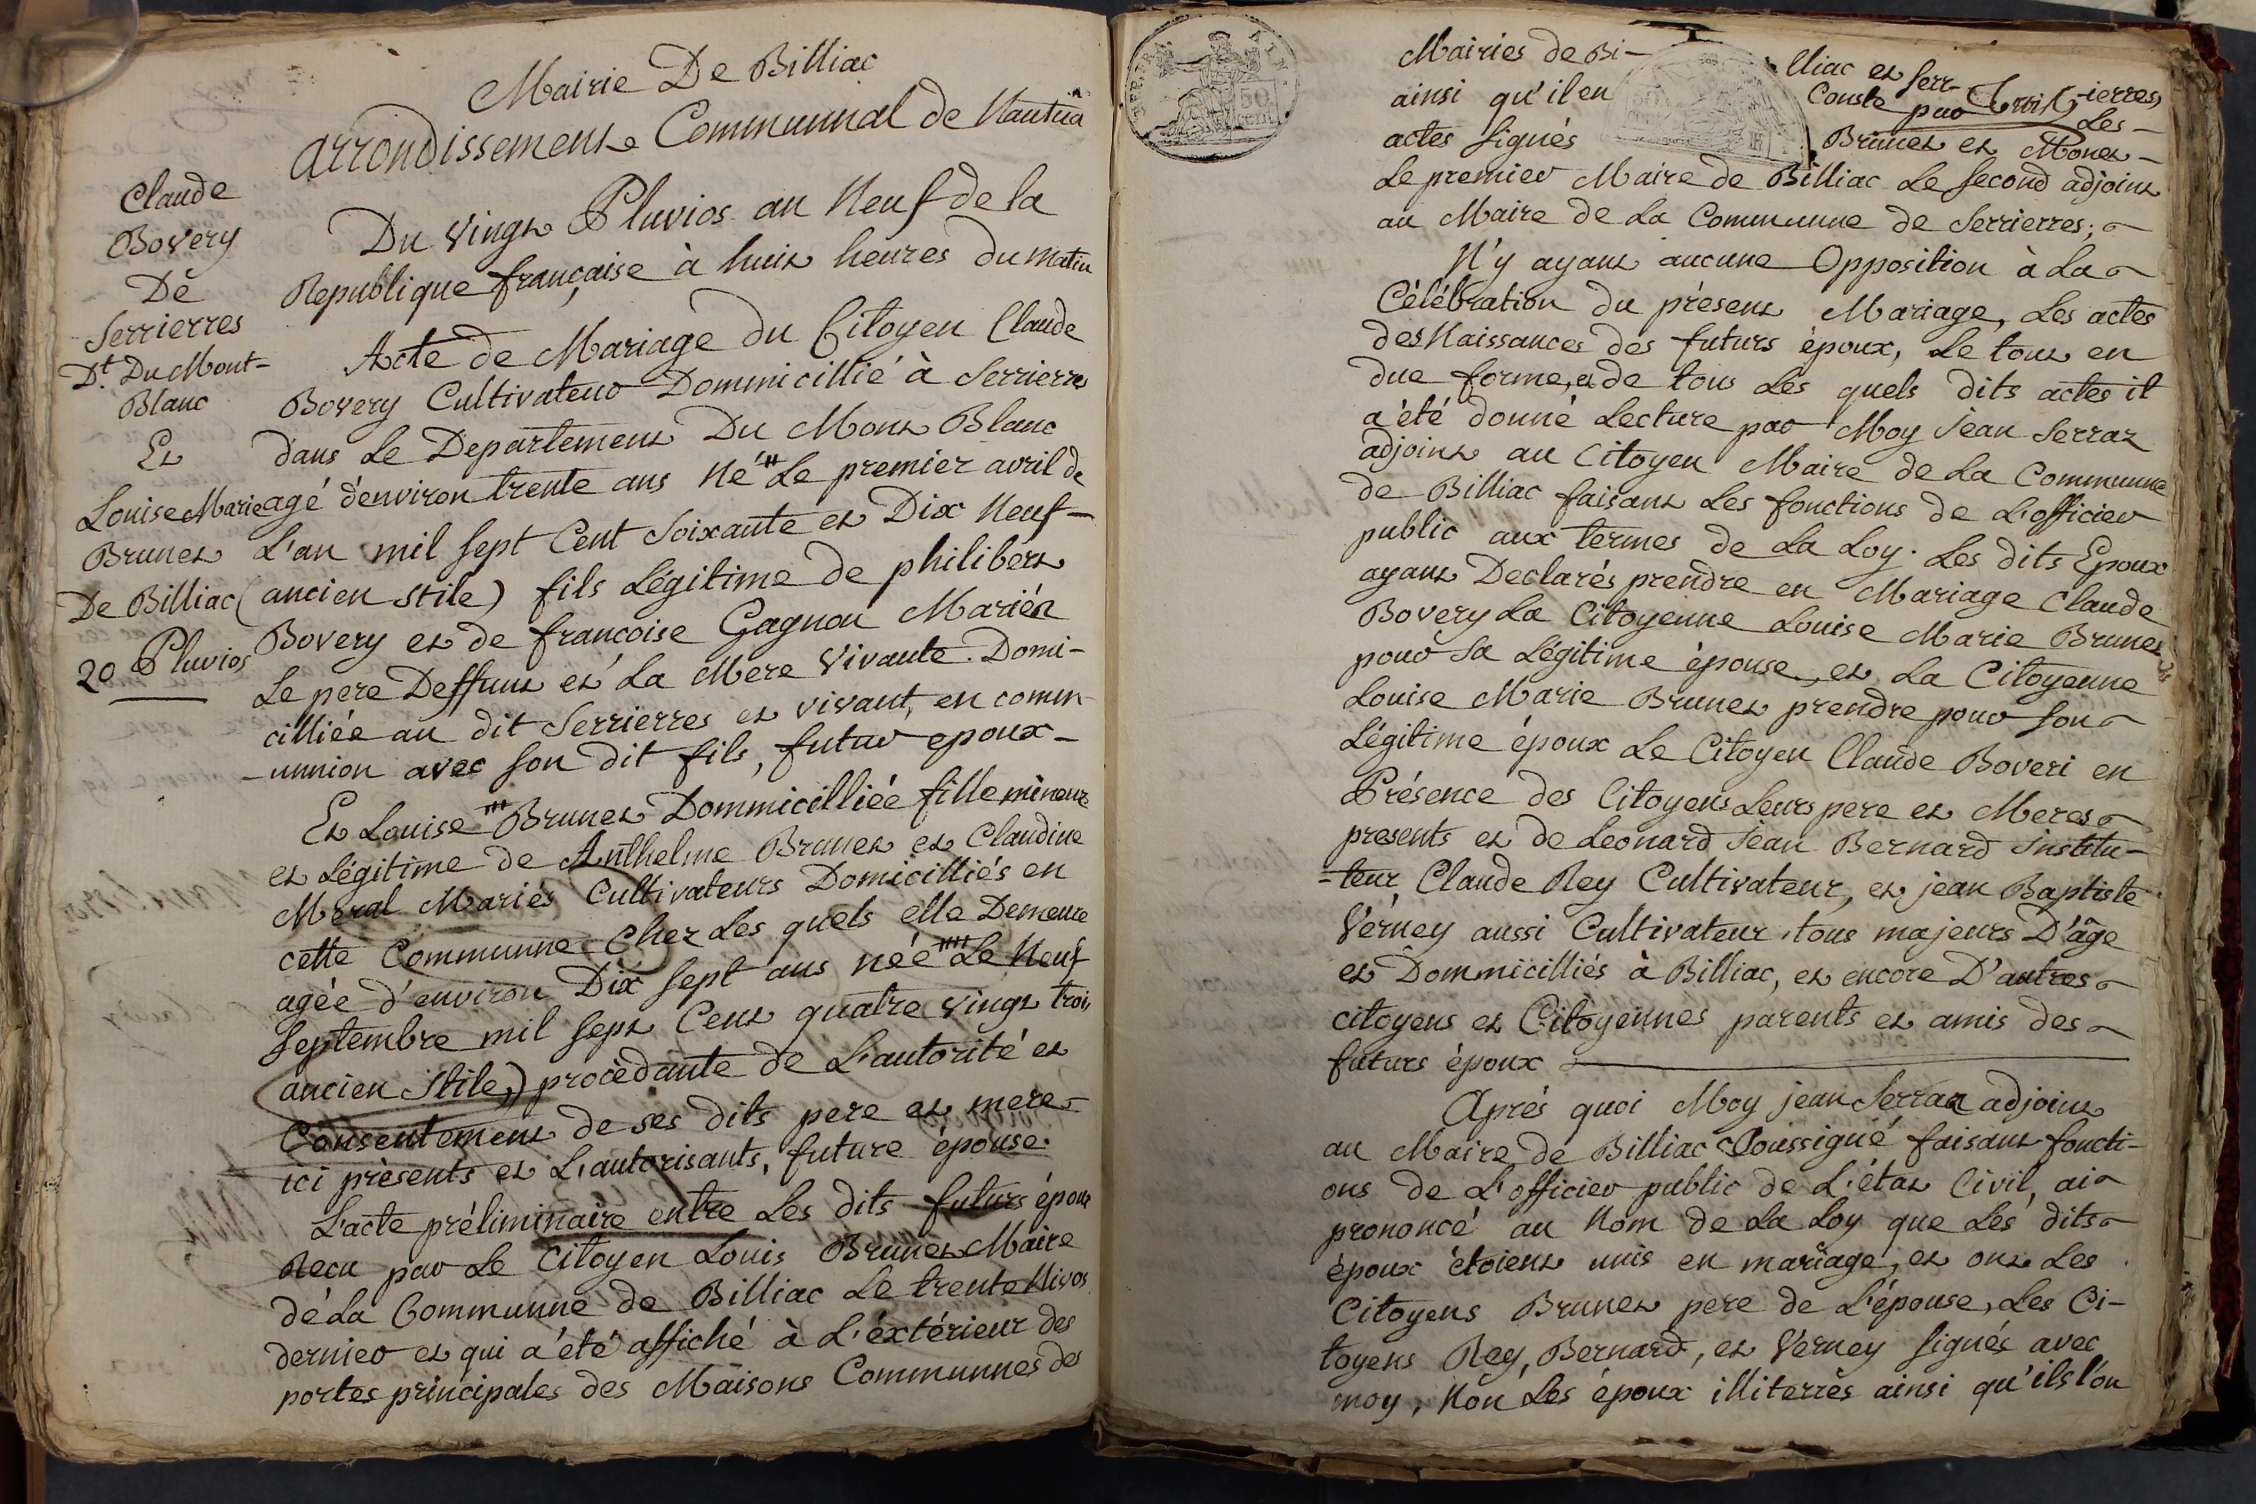 Mairie De Billiac
arrondissement Communnal de Nantua
Claude
Bovery
De
Serrierres
Dt. Du Mont-
Blanc
Et
Louise Marie
Brunet
De Billiac
20 Pluvios
Du vingt Pluvios an Neuf de la
Republique française à huit heures du matin
Acte de Mariage du Citoyen Claude
Bovery Cultivateur Dommicillié à Serrierres
dans le Departement Du Mont Blanc
agé d'environ trente ans Né # Le premier avril de
L'an mil sept Cent Soixante et Dix Neuf-
(ancien stile) fils Légitime de philibert
Bovery et de francoise Gagnon Mariés
Le pere Deffunt et La Mere Vivante. Domi-
cilliée au dit Serrierres et vivant, en comm-
-unnion avec son dit fils, futur epoux-
Et Louise # Brunet Dommicilliée fille mineure
et Légitime de Anthelme Brunet et Claudine
Meral Mariés Cultivateurs Domicilliés en
cette Communne Chez Les quels elle Demeure
agée d'environ Dix sept ans née # Le Neuf
Septembre mil sept Cent quatre vingt trois
ancien Stile,) procèdante de L'autorité et
Consentement de ses dits pere et mere
ici prèsents et L'autorisants, future épouse.
L'acte préliminaire entre Les dits futurs époux
Recu par Le Citoyen Louis Brunet Maire
de La Communne de Billiac Le trente Nivos
dernier et qui a été affiché à L'éxtérieur des
portes principales des Maisons Communnes des
Mairies de Bi-lliac et Serr-ierres,
ainsi qu'il en Conste par Les-
actes signés Brunet et Monet-
Le premier Maire de Billiac Le second adjoint
au Maire de La Communne de Serrierres;
N'y ayant aucune Opposition à La
Célébration du prèsent Mariage, Les actes
des Naissances des futurs époux, Le tout en
due forme, et de tous Les quels dits actes il
a été donné Lecture par Moy Jean Serraz
adjoint au Citoyen Maire de La Communne
de Billiac faisant Les fonctions de L'officier
public aux termes de La Loy. Les dits Epoux
ayant Declarés prendre en Mariage Claude
Bovery La Citoyenne Louise Marie Brunet
pour sa Légitime épouse, et La Citoyenne
Louise Marie Brunet prendre pour son
Légitime époux Le Citoyen Claude Boveri en
Présence des Citoyens Leurs pere et Meres
presents et de Leonard Jean Bernard Institu-
-teur Claude Rey Cultivateur, et jean Baptiste
Verney aussi Cultivateur, tous majeurs D'âge
et Dommicilliés à Billiac, et encore D'autres
citoyens et Citoyennes parents et amis des
futurs époux
Aprés quoi Moy jean Serraz adjoint
au Maire de Billiac Soussigné faisant foncti-
ons de L'officier public de L'état Civil, ai
prononcé au Nom de La Loy que Les dits
époux étoient unis en mariage, et ont Les
Citoyens Brunet pere de L'épouse, Les Ci-
toyens Rey, Bernard, et Verney signés avec
moy, Non Les époux illiterrès ainsi qu'ils l'on